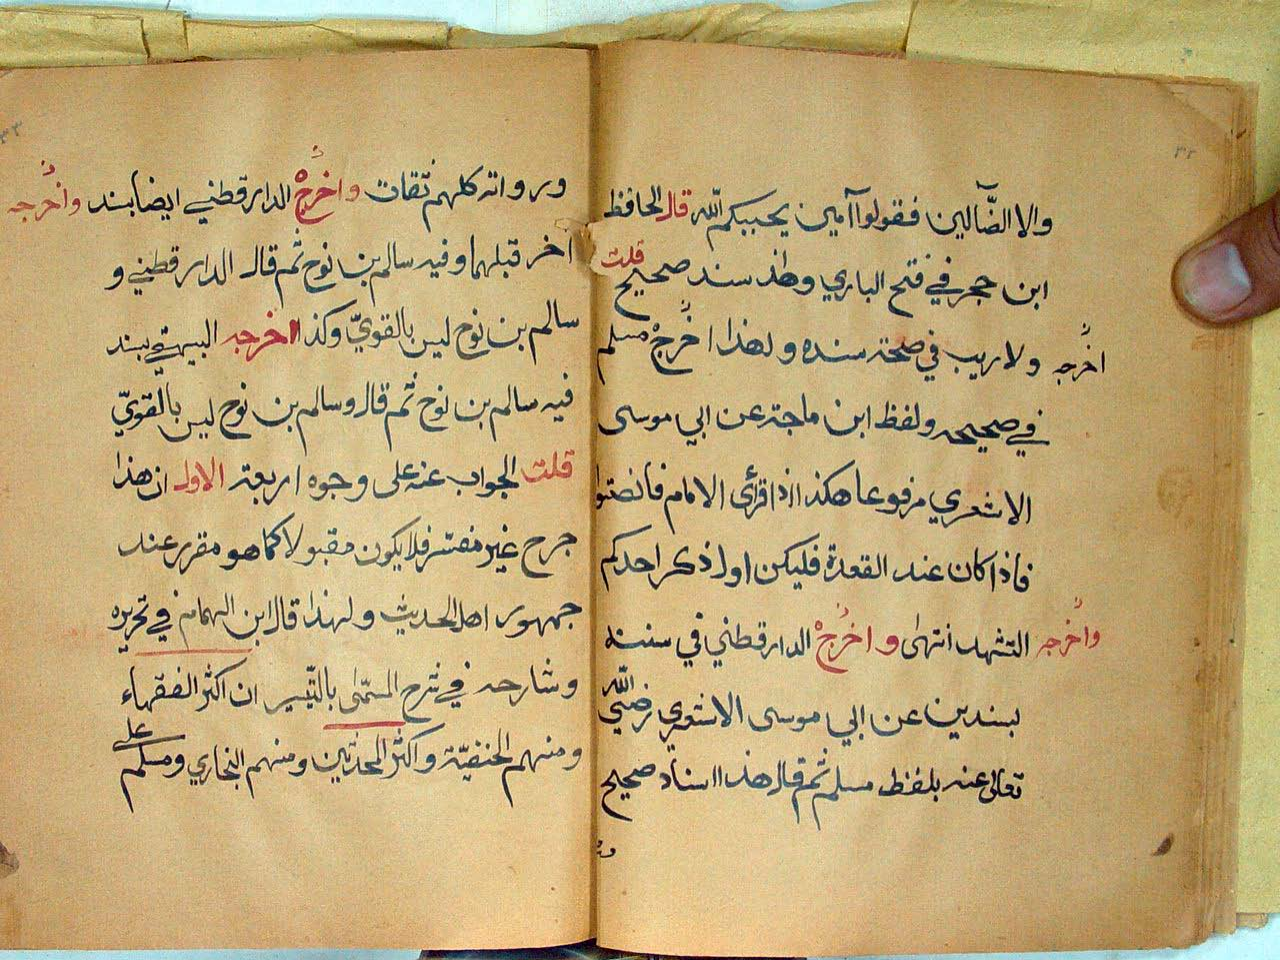 ٣٢
والا الضَّآلين فقولوا آمين يحببكم اللّه قال الحافظ
ابن حجر في فتح الباري وهذا سند صحيح قلت
ولا ريب في صحته سنده ولهذا اخرج مسلم
اخرجه
في صحيحه ولفظ ابن ماجة عن ابي موسى
الاشعري مرفوعا هكذا اذا قرأى الامام فانصتوا
فاذا كان عند القعدة فليكن اول ذكر احدكم
التشهد انتهى واخرج الدارقطني في سننه
واخرجه
بسندين عن ابي موسى الاشعري رضي اللّه
تعالى عنه بلفظ مسلم ثم قال هذا اسناد صحيح
٣٣
ورواته كلهم ثقات واخرج الدارقطني ايضا بسند
واخرجه
اخر قبلهما وفيه سالم بن نوح ثم قال الدارقطني و
سالم بن نوح ليس بالقويّ وكذا اخرجه البيهقي بسند
فيه سالم بن نوح ثم قال وسالم بن نوح ليس بالقويّ
قلت الجواب عنه على وجوه اربعة الاول ان هذا
جرح غير مفسّر فلا يكون مقبولا كما هو مقرر عند
جمهور اهل الحديث ولهذا قال ابن الهمام في تحريره
وشارحه في شرح المسمّى بالتّيسير ان اكثر الفقهاء
ومنهم الحنفيّة واكثر المحدثين ومنهم البخاري ومسلم على